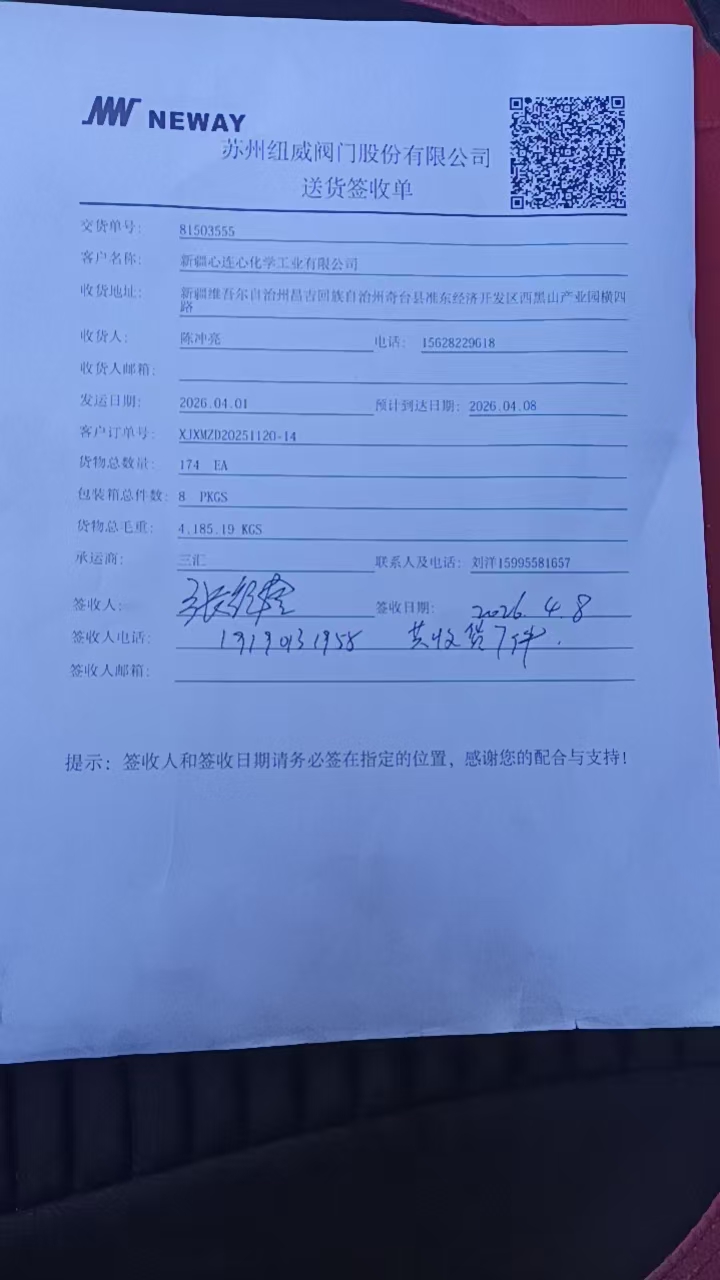 NEWAY
苏州纽威阀门股份有限公司
送货签收单
交货单号: 81503555
客户名称: 新疆心连心化学工业有限公司
收货地址: 新疆维吾尔自治州昌吉回族自治州奇台县准东经济开发区西黑山产业园横四
路
收货人: 陈冲亮 电话: 15628229618
收货人邮箱:
发运日期: 2026.04.01 预计到达日期: 2026.04.08
客户订单号: XJXMZD20251120-14
货物总数量: 174 EA
包装箱总件数: 8 PKGS
货物总毛重: 4,185.19 KGS
承运商: 三汇 联系人及电话: 刘洋15995581657
签收人: 签收日期: 2026.4.8
签收人电话: 共收货7件.
签收人邮箱:
提示: 签收人和签收日期请务必签在指定的位置, 感谢您的配合与支持!